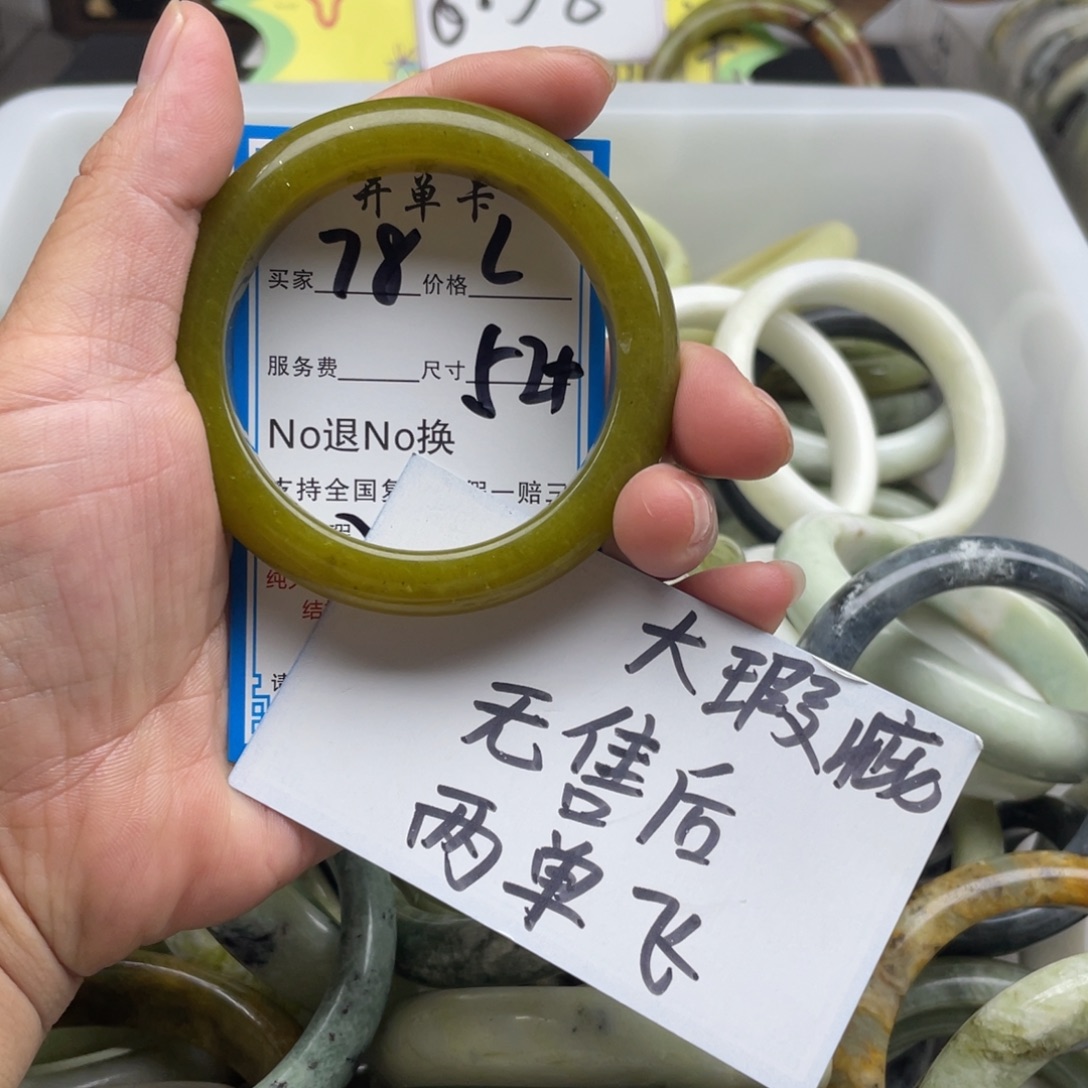 开单卡
买家 78 价格 L
服务费 尺寸 54
No退No换
支持全国复 假一赔三
理
纯
结
请
大瑕疵
无售后
两单飞